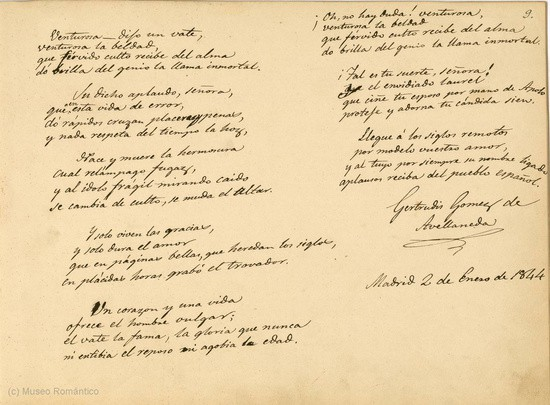 Venturosa — dijo un vate,
venturosa la beldad,
que férvido culto recibe del alma
dó brilla del genio la llama inmortal.
Su dicho aplaudo, señora,
que en esta vida de error,
dó rápidos cruzan placeres y penas,
y nada respeta del tiempo la hoz,
Nace y muere la hermosura
cual relámpago fugaz,
y al ídolo frágil mirando caido
se cambia de culto, se muda el Altar.
Y solo viven las gracias,
y solo dura el amor
que en páginas bellas, que heredan los siglos,
en plácidas horas grabó el trovador.
Un corazon y una vida
ofrece el hombre vulgar;
el vate la fama, la gloria que nunca
ni entibia el reposo ni agobia la edad.
9.
¡Oh, no hay duda! venturosa,
venturosa la beldad
que férvido culto recibe del alma
do brilla del genio la llama inmortal.
¡Tal es tu suerte, señora!
el envidiado laurel
que ciñe tu esposo por mano de Apolo
proteje y adorna tu cándida sien.
Llegue á los siglos remotos
por modelo vuestro amor,
y al tuyo por siempre su nombre ligado
aplausos reciba del pueblo español.
Gertrudis Gomez de
Avellaneda
Madrid 2 de Enero de 1844
(c) Museo Romántico